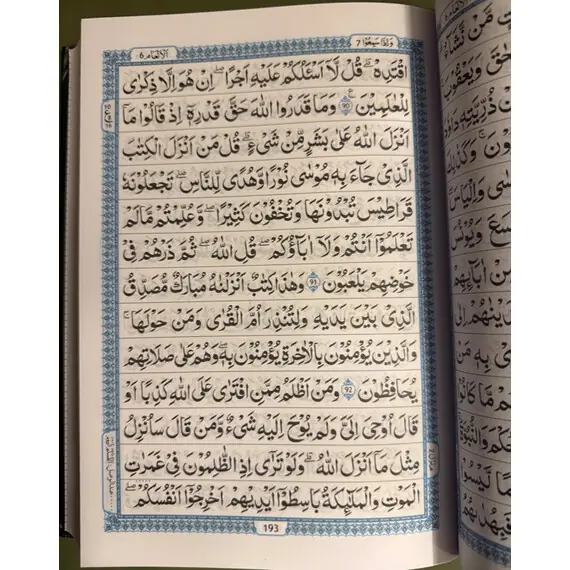 وَاِذَا سَمِعُوْا 7
اَلْاَنْعَام 6
اقْتَدِهْ ؕ قُلْ لَّاۤ اَسْـَٔلُكُمْ عَلَيْهِ اَجْرًا ؕ اِنْ هُوَ اِلَّا ذِكْرٰى
لِلْعٰلَمِيْنَ 90 ع وَمَا قَدَرُوا اللّٰهَ حَقَّ قَدْرِهٖۤ اِذْ قَالُوْا مَاۤ
اَنْزَلَ اللّٰهُ عَلٰى بَشَرٍ مِّنْ شَیْءٍ ؕ قُلْ مَنْ اَنْزَلَ الْكِتٰبَ
الَّذِیْ جَآءَ بِهٖ مُوْسٰى نُوْرًا وَّهُدًى لِّلنَّاسِ ؕ تَجْعَلُوْنَهٗ
قَرَاطِيْسَ تُبْدُوْنَهَا وَتُخْفُوْنَ كَثِيْرًا ۚ وَعُلِّمْتُمْ مَّا لَمْ
تَعْلَمُوْۤا اَنْتُمْ وَلَاۤ اٰبَآؤُكُمْ ؕ قُلِ اللّٰهُ ۙ ثُمَّ ذَرْهُمْ فِیْ
خَوْضِهِمْ يَلْعَبُوْنَ 91 وَهٰذَا كِتٰبٌ اَنْزَلْنٰهُ مُبٰرَكٌ مُّصَدِّقُ
الَّذِیْ بَيْنَ يَدَيْهِ وَلِتُنْذِرَ اُمَّ الْقُرٰى وَمَنْ حَوْلَهَا ؕ
وَالَّذِيْنَ يُؤْمِنُوْنَ بِالْاٰخِرَةِ يُؤْمِنُوْنَ بِهٖ وَهُمْ عَلٰى صَلَاتِهِمْ
يُحَافِظُوْنَ 92 وَمَنْ اَظْلَمُ مِمَّنِ افْتَرٰى عَلَى اللّٰهِ كَذِبًا اَوْ
قَالَ اُوْحِیَ اِلَیَّ وَلَمْ يُوْحَ اِلَيْهِ شَیْءٌ وَّمَنْ قَالَ سَاُنْزِلُ
مِثْلَ مَاۤ اَنْزَلَ اللّٰهُ ؕ وَلَوْ تَرٰٓى اِذِ الظّٰلِمُوْنَ فِیْ غَمَرٰتِ
الْمَوْتِ وَالْمَلٰٓئِكَةُ بَاسِطُوْۤا اَيْدِيْهِمْ ۚ اَخْرِجُوْۤا اَنْفُسَكُمْ ؕ
193